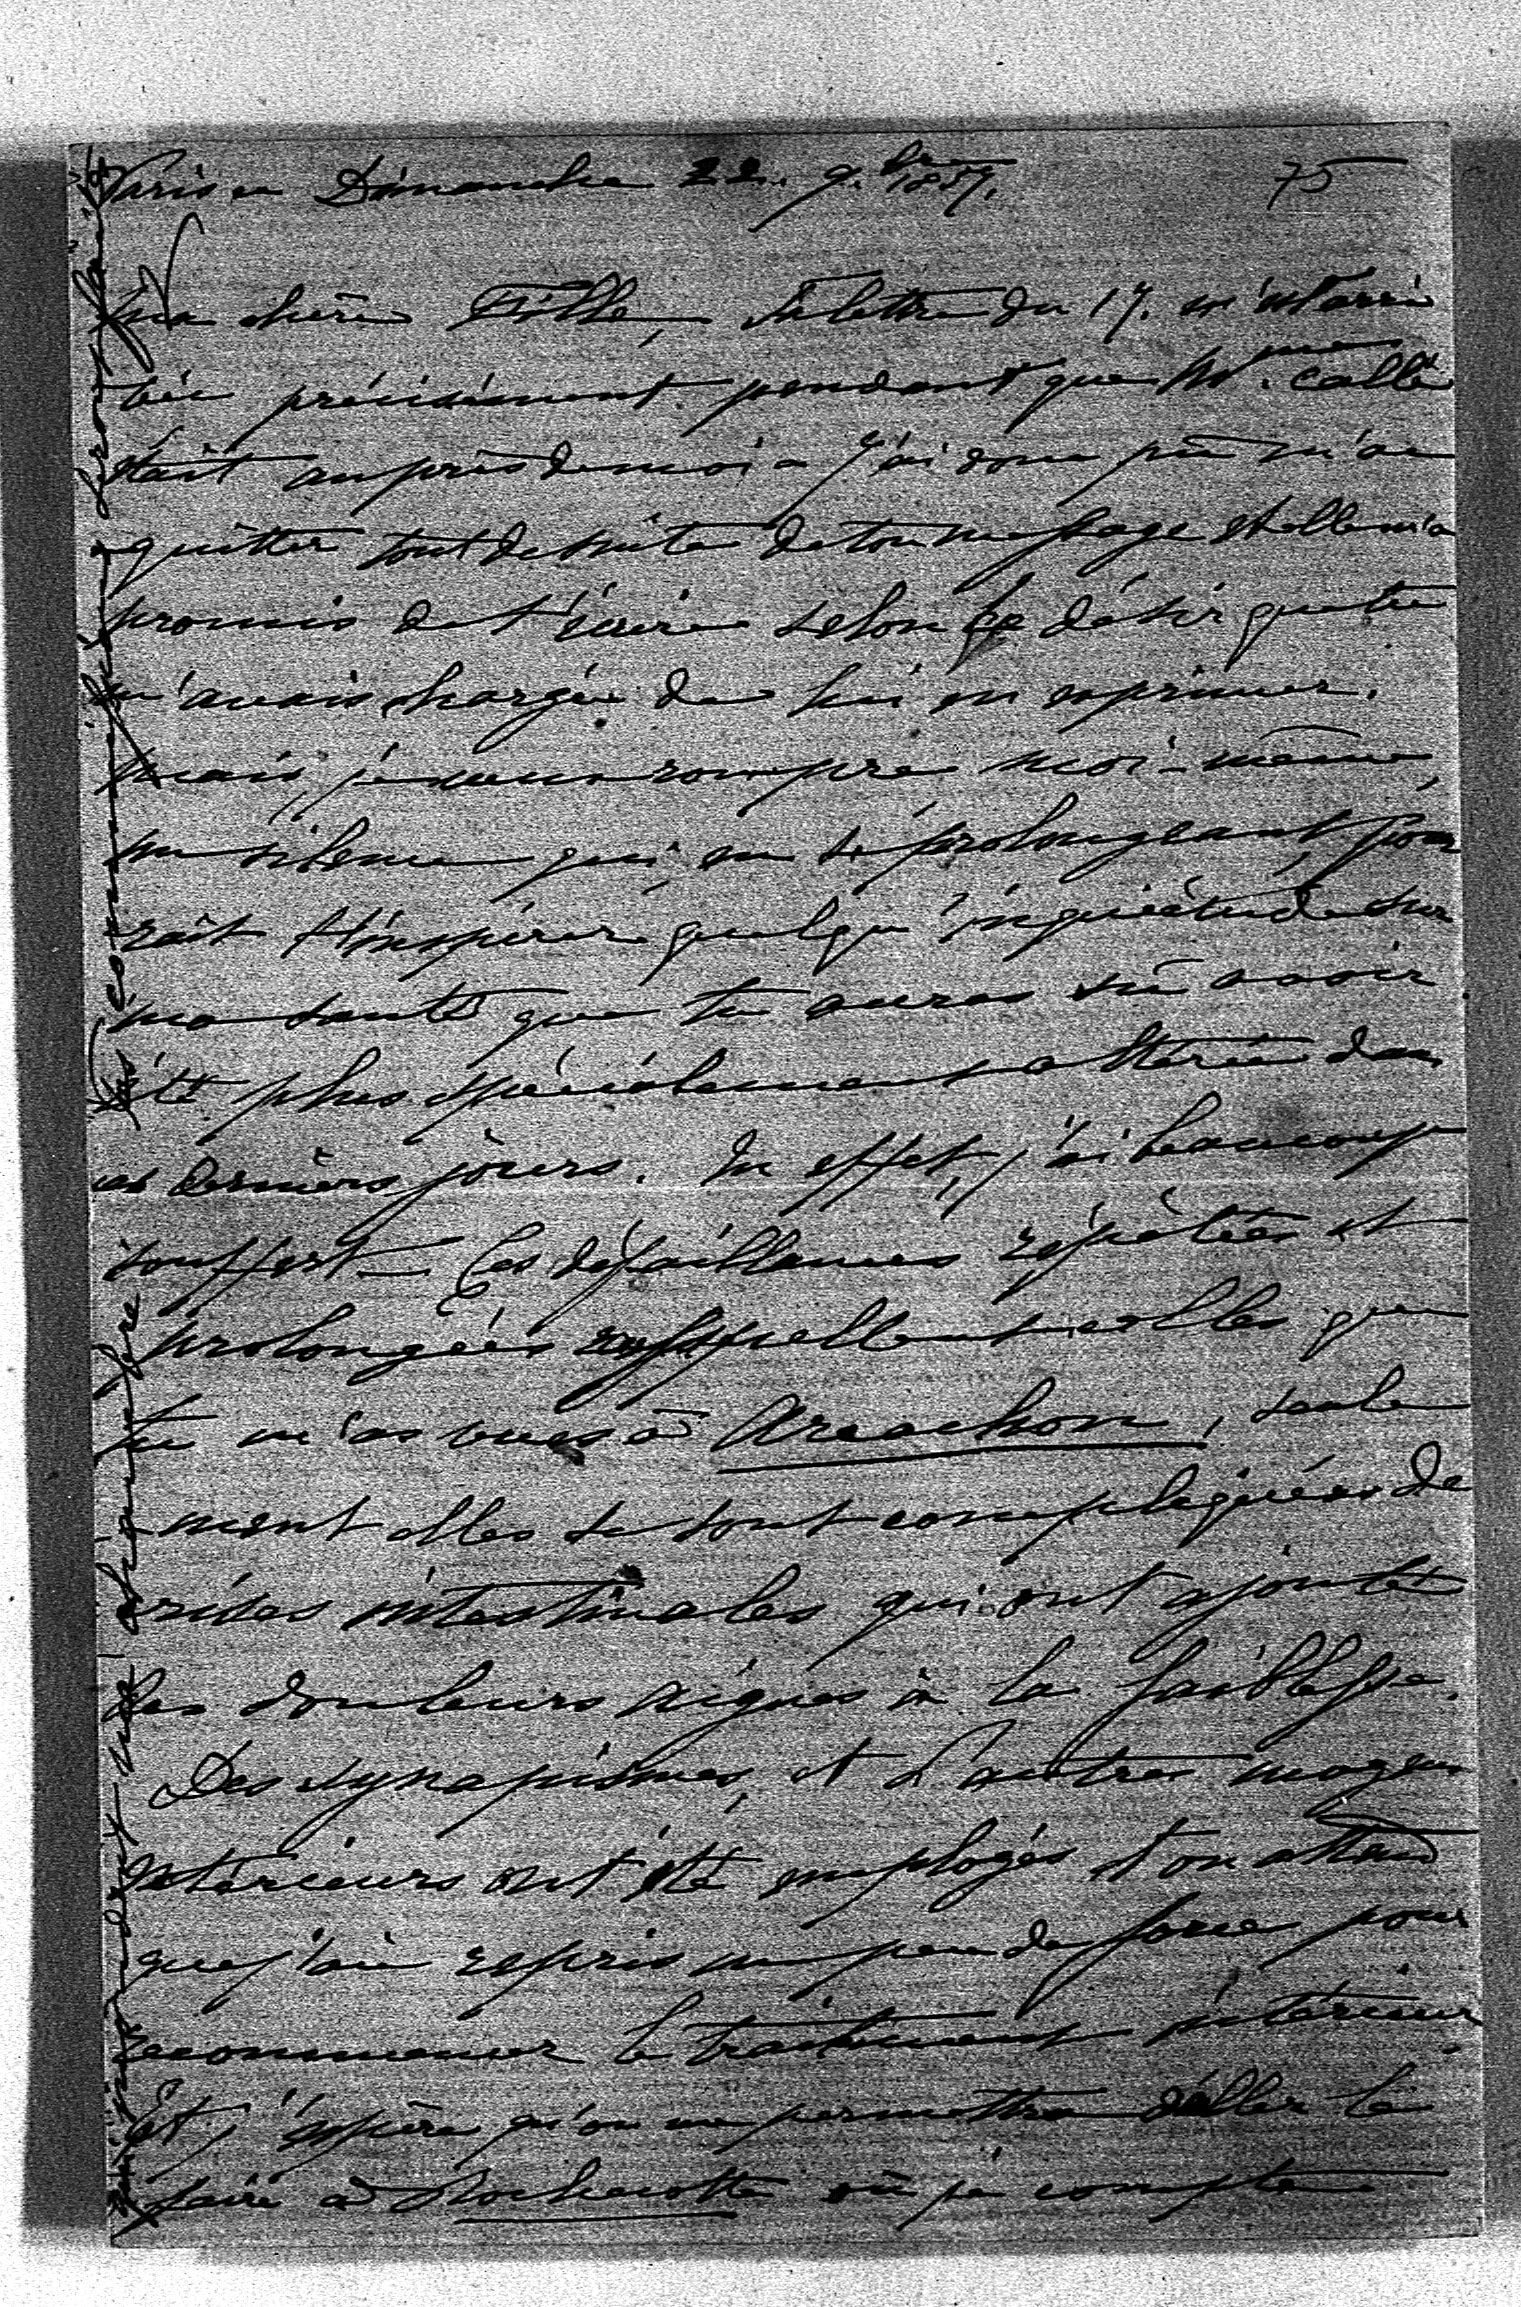 Paris ce Dimanche 22. 9.bre 1857. 75
Ma chère Fille, Ta lettre du 17. m'est arri
vée précisément pendant que Mme Callé
était auprès de moi - J'ai donc pû m'ac
quitter tout de suite de ton message et elle m'a
promis de t'écrire selon le désir que tu
m'avais chargée de lui en exprimer.
Mais, je veux rompre moi-même,
un silence qui, en se prolongeant, pour
rait t'inspirer quelqu'inquiétude sur
ma santé que tu auras sû avoir
été plus spécialement altérée dans
ces derniers jours. En effet, j'ai beaucoup
souffert - Ces défaillances répétées et
prolongées rappellent celles que
tu m'as vues à Arcachon, seule
ment elles se sont compliquées de
crises intestinales qui ont ajouté
des douleurs aigues à la faiblesse.
Des synapismes, et d'autres moyens
extérieurs ont été employés et on attend
que j'aie repris un peu de force pour
recommencer le traitement intérieur.
Et, j'espère qu'on me permettra d'aller le
faire à Rochecotte où je compte